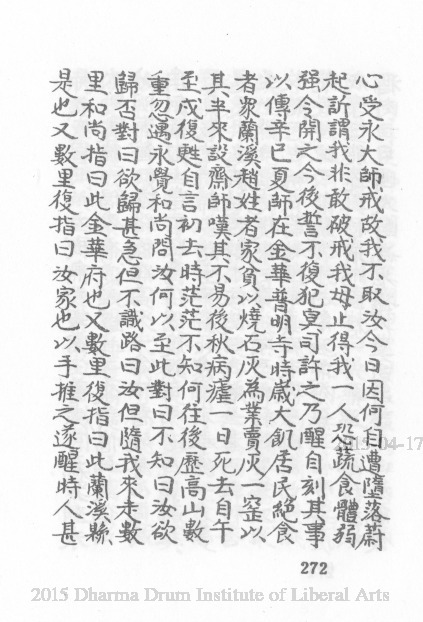 心受永大師戒故我不取汝今日因何自遭墮落蔚
起訢謂我非敢破戒我母止得我一人恐蔬食體弱
强令開之今後誓不復犯冥司許之乃醒自刻其事
以傳辛巳夏師在金華普明寺時歲大飢居民絕食
者眾蘭溪趙姓者家貧以燒石灰為業賣灰一窑以
其半來設齋師嘆其不易後秋病瘧一日死去自午
至戌復甦自言初去時茫茫不知何往後歷高山數
重忽遇永覺和尚問汝何以至此對曰不知曰汝欲
歸否對曰欲歸甚急但不識路曰汝但隨我來未數
里和尚指曰此金華府也又數里復指曰此蘭溪縣
是也又數里復指曰汝家也以手推之遂醒時人甚
2015-04-17
272
2015 Dharma Drum Institute of Liberal Arts